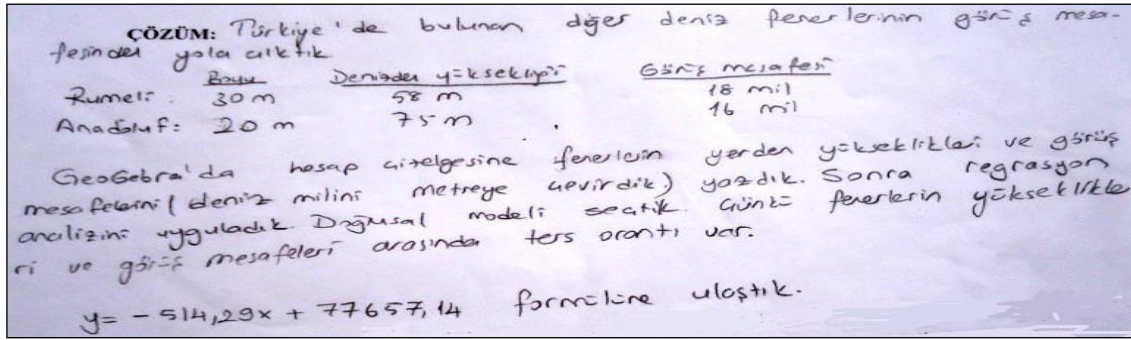 ÇÖZÜM: Türkiye'de bulunan diğer deniz fenerlerinin görüş mesa-
fesinden yola çıktık.
Boyu Denizden yüksekliği Görüş mesafesi
Rumeli: 30 m 58 m 18 mil
Anadoluf: 20 m 75 m 16 mil
GeoGebra'da hesap çizelgesine fenerlerin yerden yükseklikleri ve görüş
mesafelerini (deniz milini metreye çevirdik.) yazdık. Sonra regrasyon
analizini uyguladık Doğrusal modeli seçtik. Çünkü fenerlerin yükseklikle
ri ve görüş mesafeleri arasında ters orantı var.
y= -514,29x + 77657,14 formülüne ulaştık.